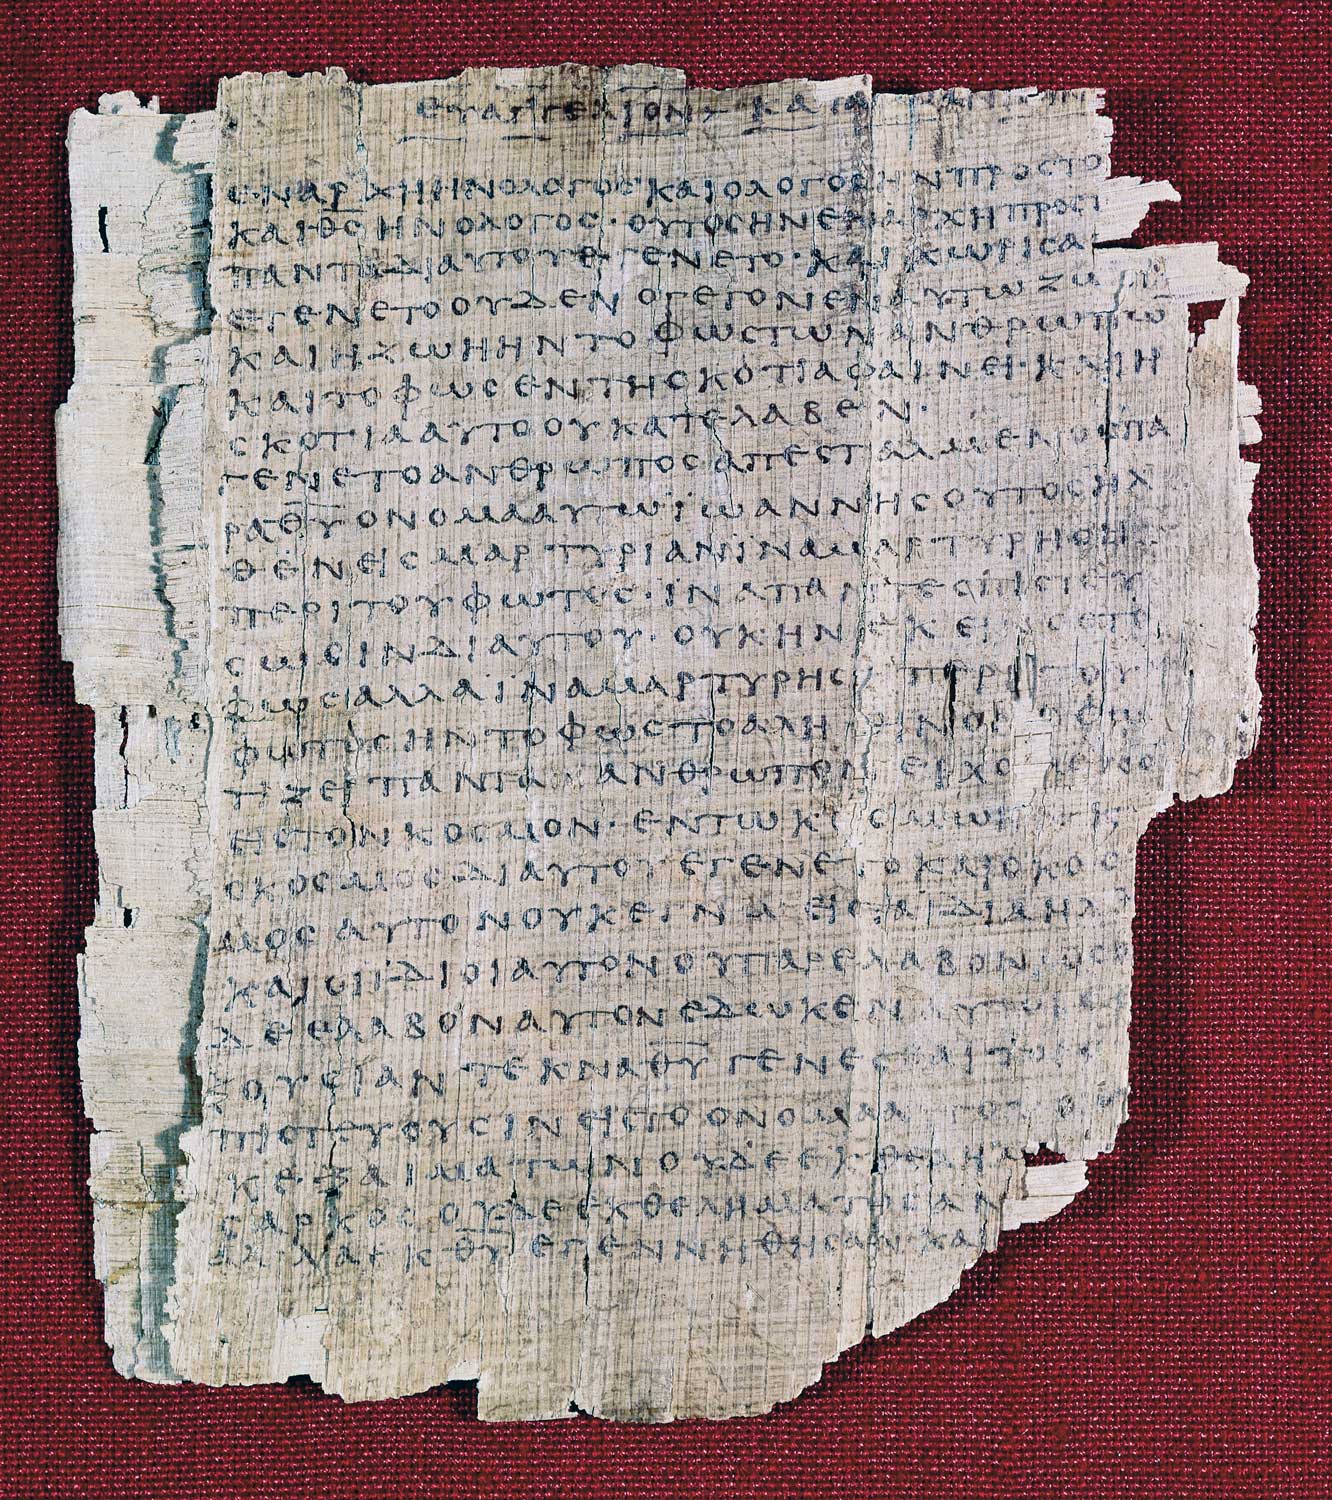 ευαγγελιον κατα
εν αρχη ην ο λογος και ο λογος ην προς το
και θς ην ο λογος · ουτος ην εν αρχη προς
παντα δι αυτου εγενετο · και χωρις
εγενετο ουδεν ο γεγονεν εν αυτω
και η ζωη ην το φως των ανθρωπω̅
και το φως εν τη σκοτια φαινει · και η
σκοτια αυτο ου κατελαβεν ·
γενετο ανθρωπος απεσταλμενος πα
ρα θυ ονομα αυτω ϊωαννης ουτος ηλ
θεν εις μαρτυριαν ϊνα μαρτυρηση
περι του φωτος · ϊνα παντες πιστευ
σωσιν δι αυτου · ουκ ην εκεινος το
φως αλλα ϊνα μαρτυρηση περι του
φωτος ην το φως το αληθινον ο φω
τιζει παντα ανθρωπον ερχομενον
εις τον κοσμον · εν τω κοσμω ην
ο κοσμος δι αυτου εγενετο και ο κοσ
μος αυτον ουκ εγνω εις τα ϊδια ηλ
και οι ϊδιοι αυτον ου παρελαβον · οσοι
δε ελαβον αυτον εδωκεν αυτοις
ξουσιαν τεκνα θυ γενεσθαι τοις
πιστευουσιν εις το ονομα
κ εξ αιματων ουδε εκ θελημ
σαρκος ουδε εκ θεληματος αν
αλλα εκ θυ εγεννηθησαν και